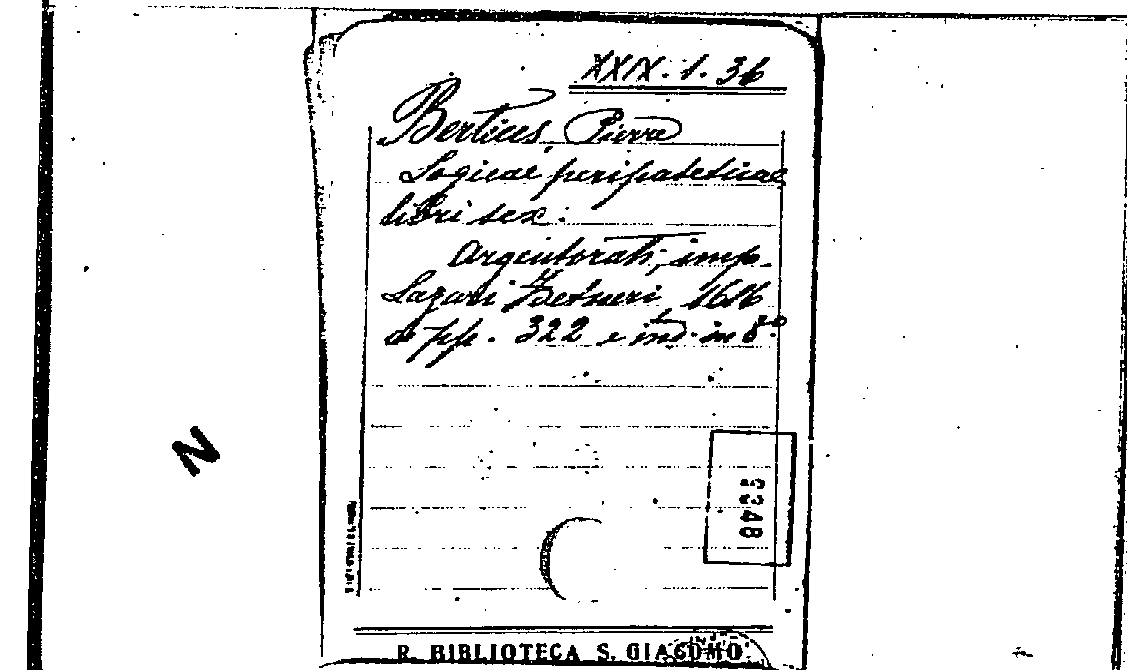 XXIX. 1. 36
Bertices, (Pierre)
Logicae peripateticae
libri sex:
Argentorati, imp.
Lazari Zetzneri, 1616
di pp. 322 e ind. in 8º
N
3348
R. BIBLIOTECA S. GIACOMO